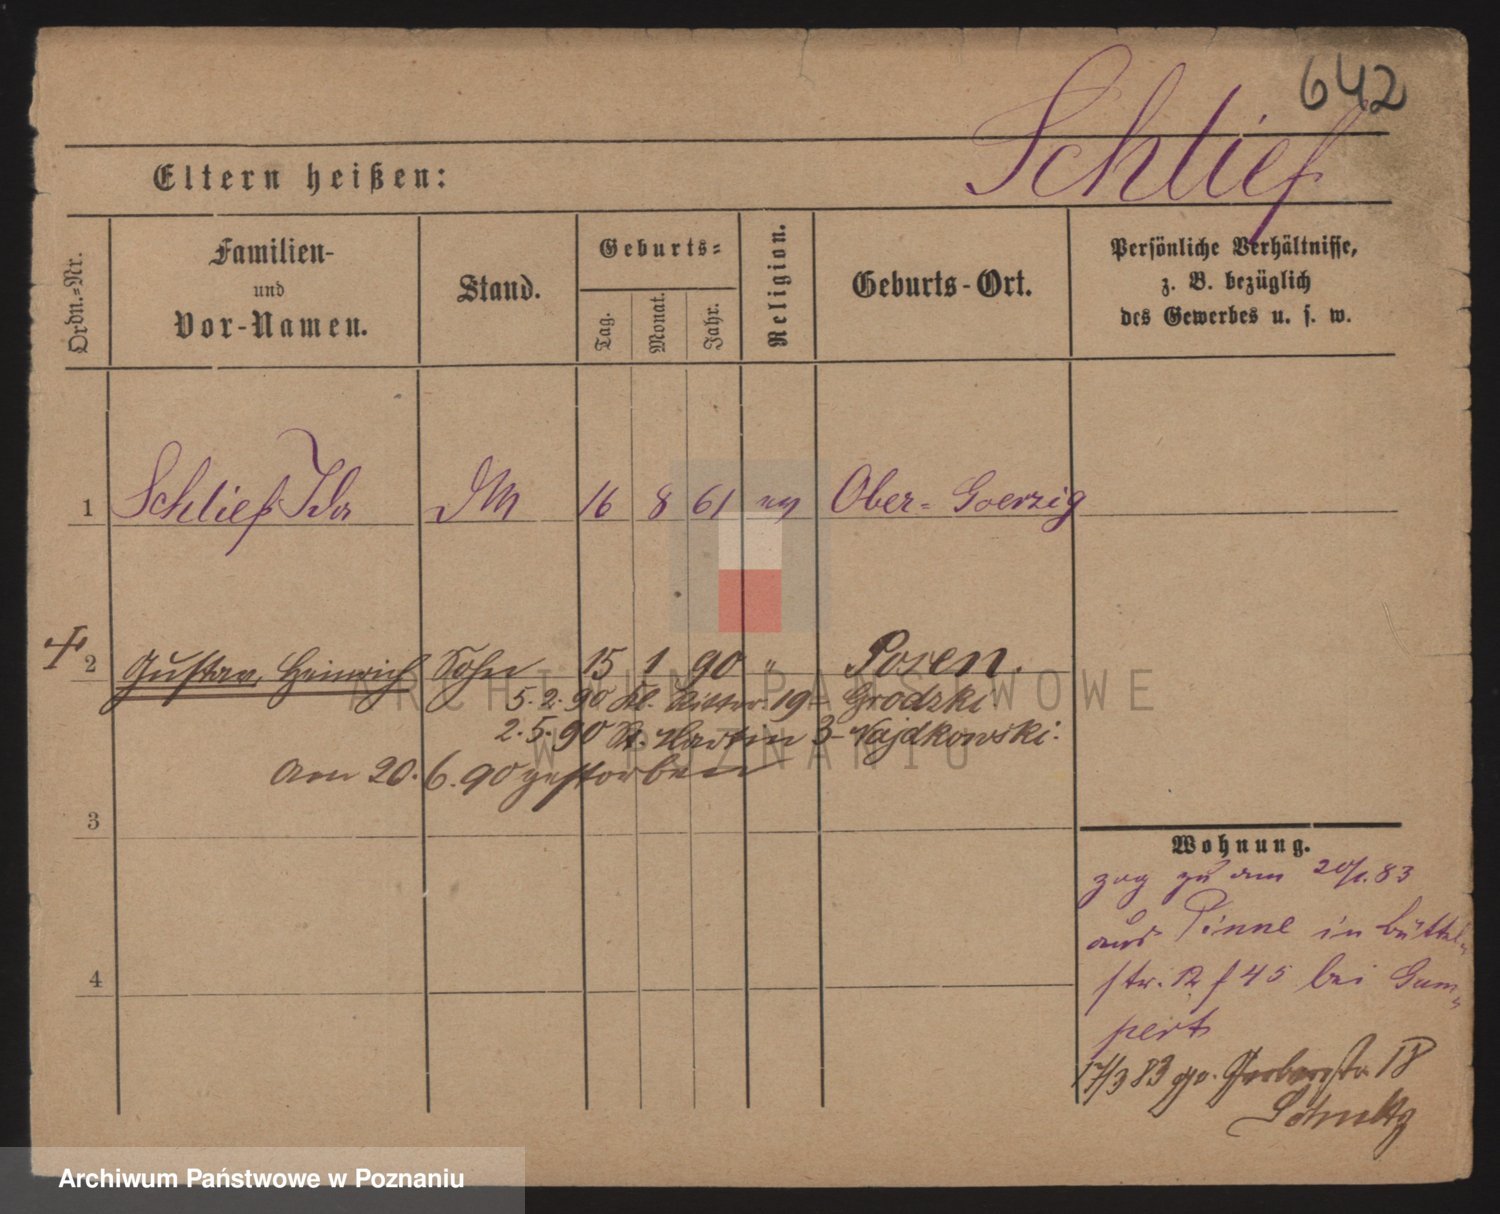 642
Schlief
Eltern heißen:
Ordn.-Nr.
Familien-
und
Vor-Namen.
Stand.
Geburts-
Tag.
Monat.
Jahr.
Religion.
Geburts-Ort.
Persönliche Verhältnisse,
z. B. bezüglich
des Gewerbes u. s. w.
1 Schlief Ida DM 16 8 61 ev Ober-Goerzig
2 Gustav Heinrich Sohn 15 1 90 " Posen.
5.2.90 Kl. Ritter 19- Grodzki.
2.5.90 St. Martin 3- Najdkowski.
am 20.6.90 gestorben
3
4
Wohnung.
zog zu am 20/1.83
aus Pinne in Büttel-
str. 12 f 45 bei Gum-
pert
17/3 83 Gerberstr. 18
Schultz
ARCHIWUM PAŃSTWOWE
W POZNANIU
Archiwum Państwowe w Poznaniu